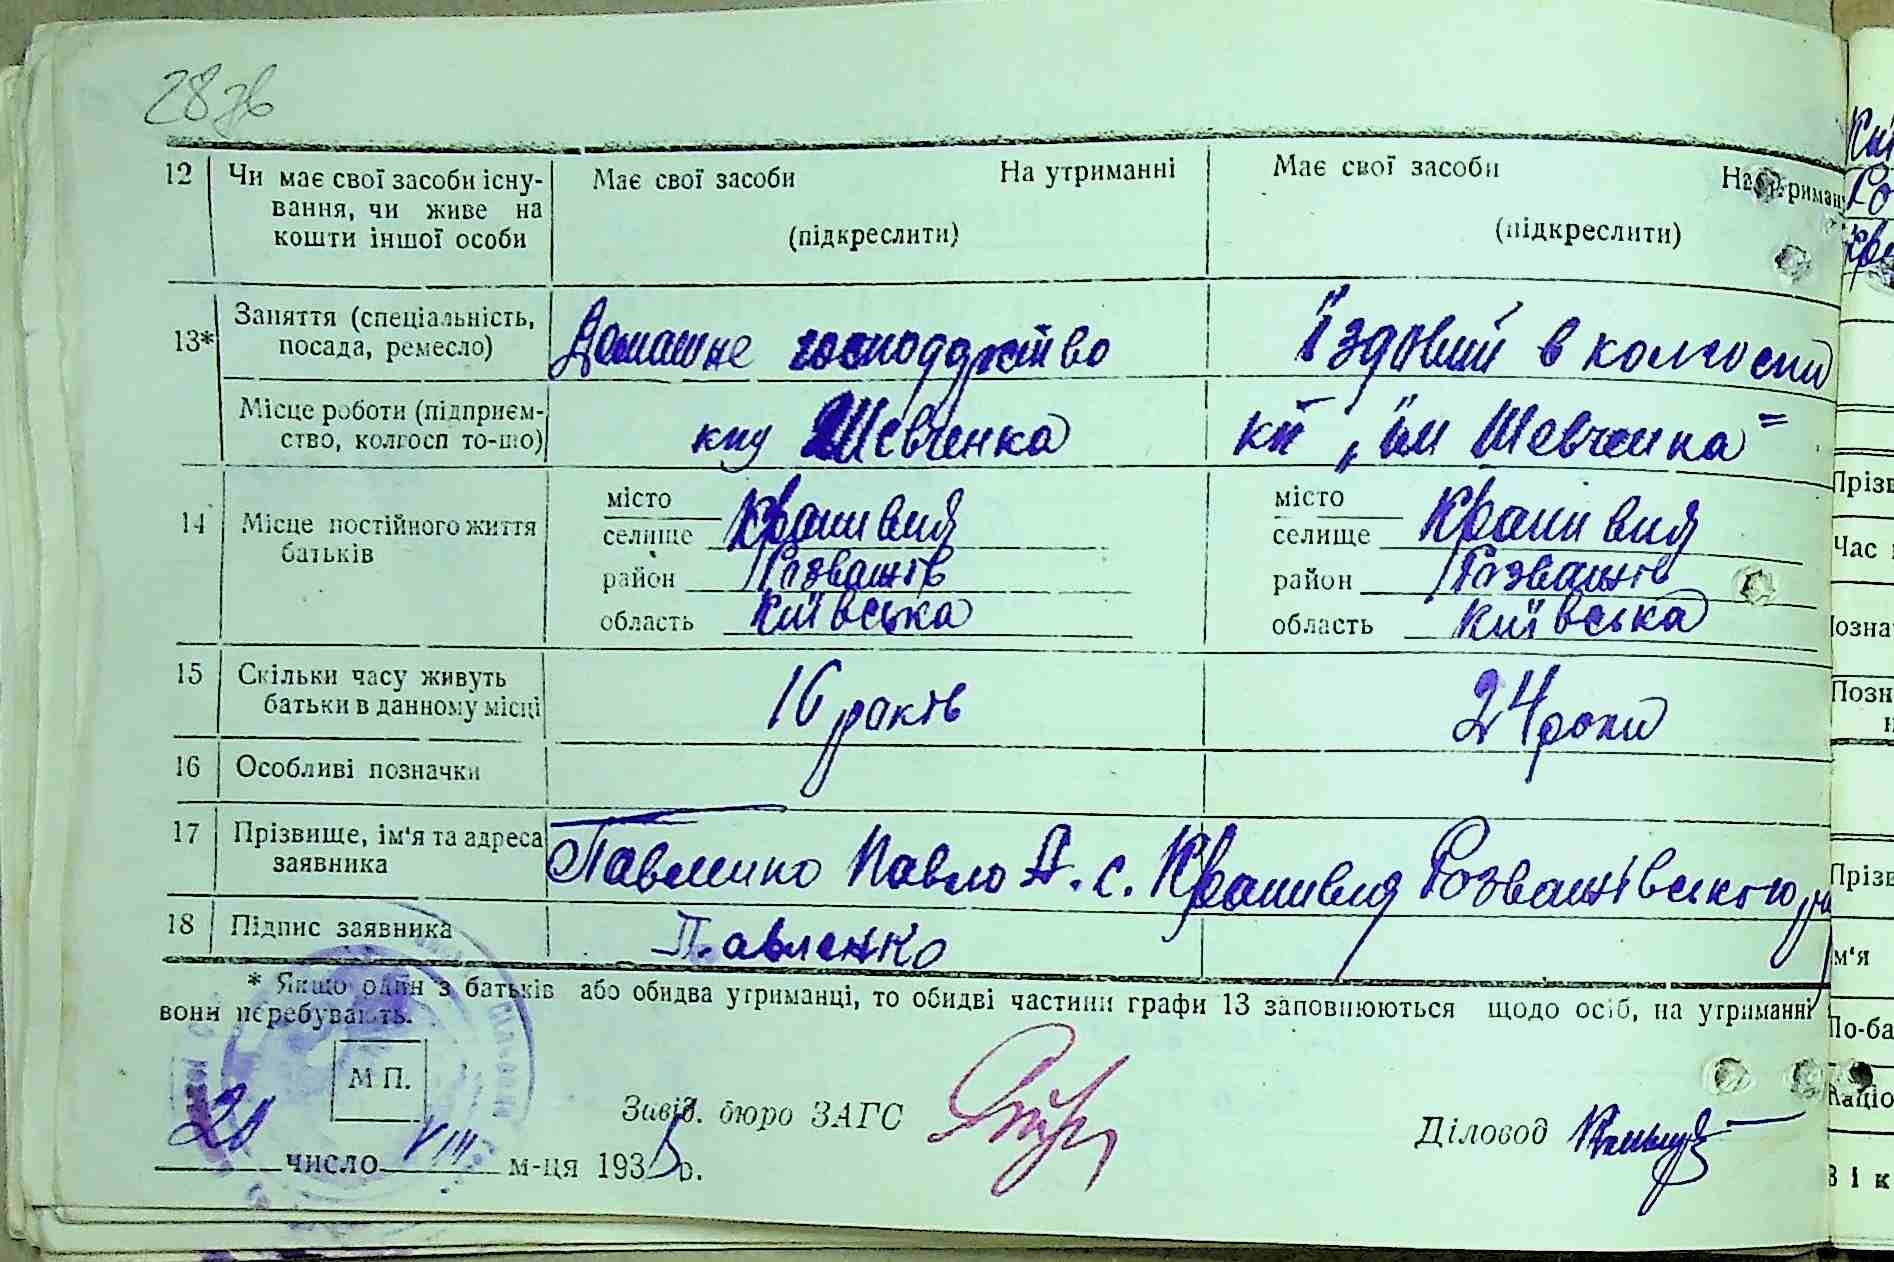 28 зв
12 Чи має свої засоби існу- Має свої засоби На утриманні Має свої засоби На утриман
вання, чи живе на
кошти іншої особи (підкреслити) (підкреслити)
13* Заняття (спеціальність, посада, ремесло) Домашнє господарство Їздовий в колгоспи
Місце роботи (підприєм-
ство, колгосп то-що) кпу Шевченка кп „їм Шевченка"
14 Місце постійного життя батьків
місто місто
селище Крапивня селище Крапивня
район Розважів район Розважів
область Київська область Київська
15 Скільки часу живуть
батьки в данному місці 16 років 24 роки
16 Особливі позначки
17 Прізвище, ім'я та адреса
заявника Павленко Павло А. с. Крапивня Розважівського ра
18 Підпис заявника Павленко
* Якщо один з батьків або обидва утриманці, то обидві частини графи 13 заповнюються щодо осіб, на утриманні
вони перебувають.
М П.
Завід. бюро ЗАГС
Діловод
20 число VIII м-ця 1935 р.
Прізв
Час
Позн
Прізв
м'я
По-ба
Націо
В і к